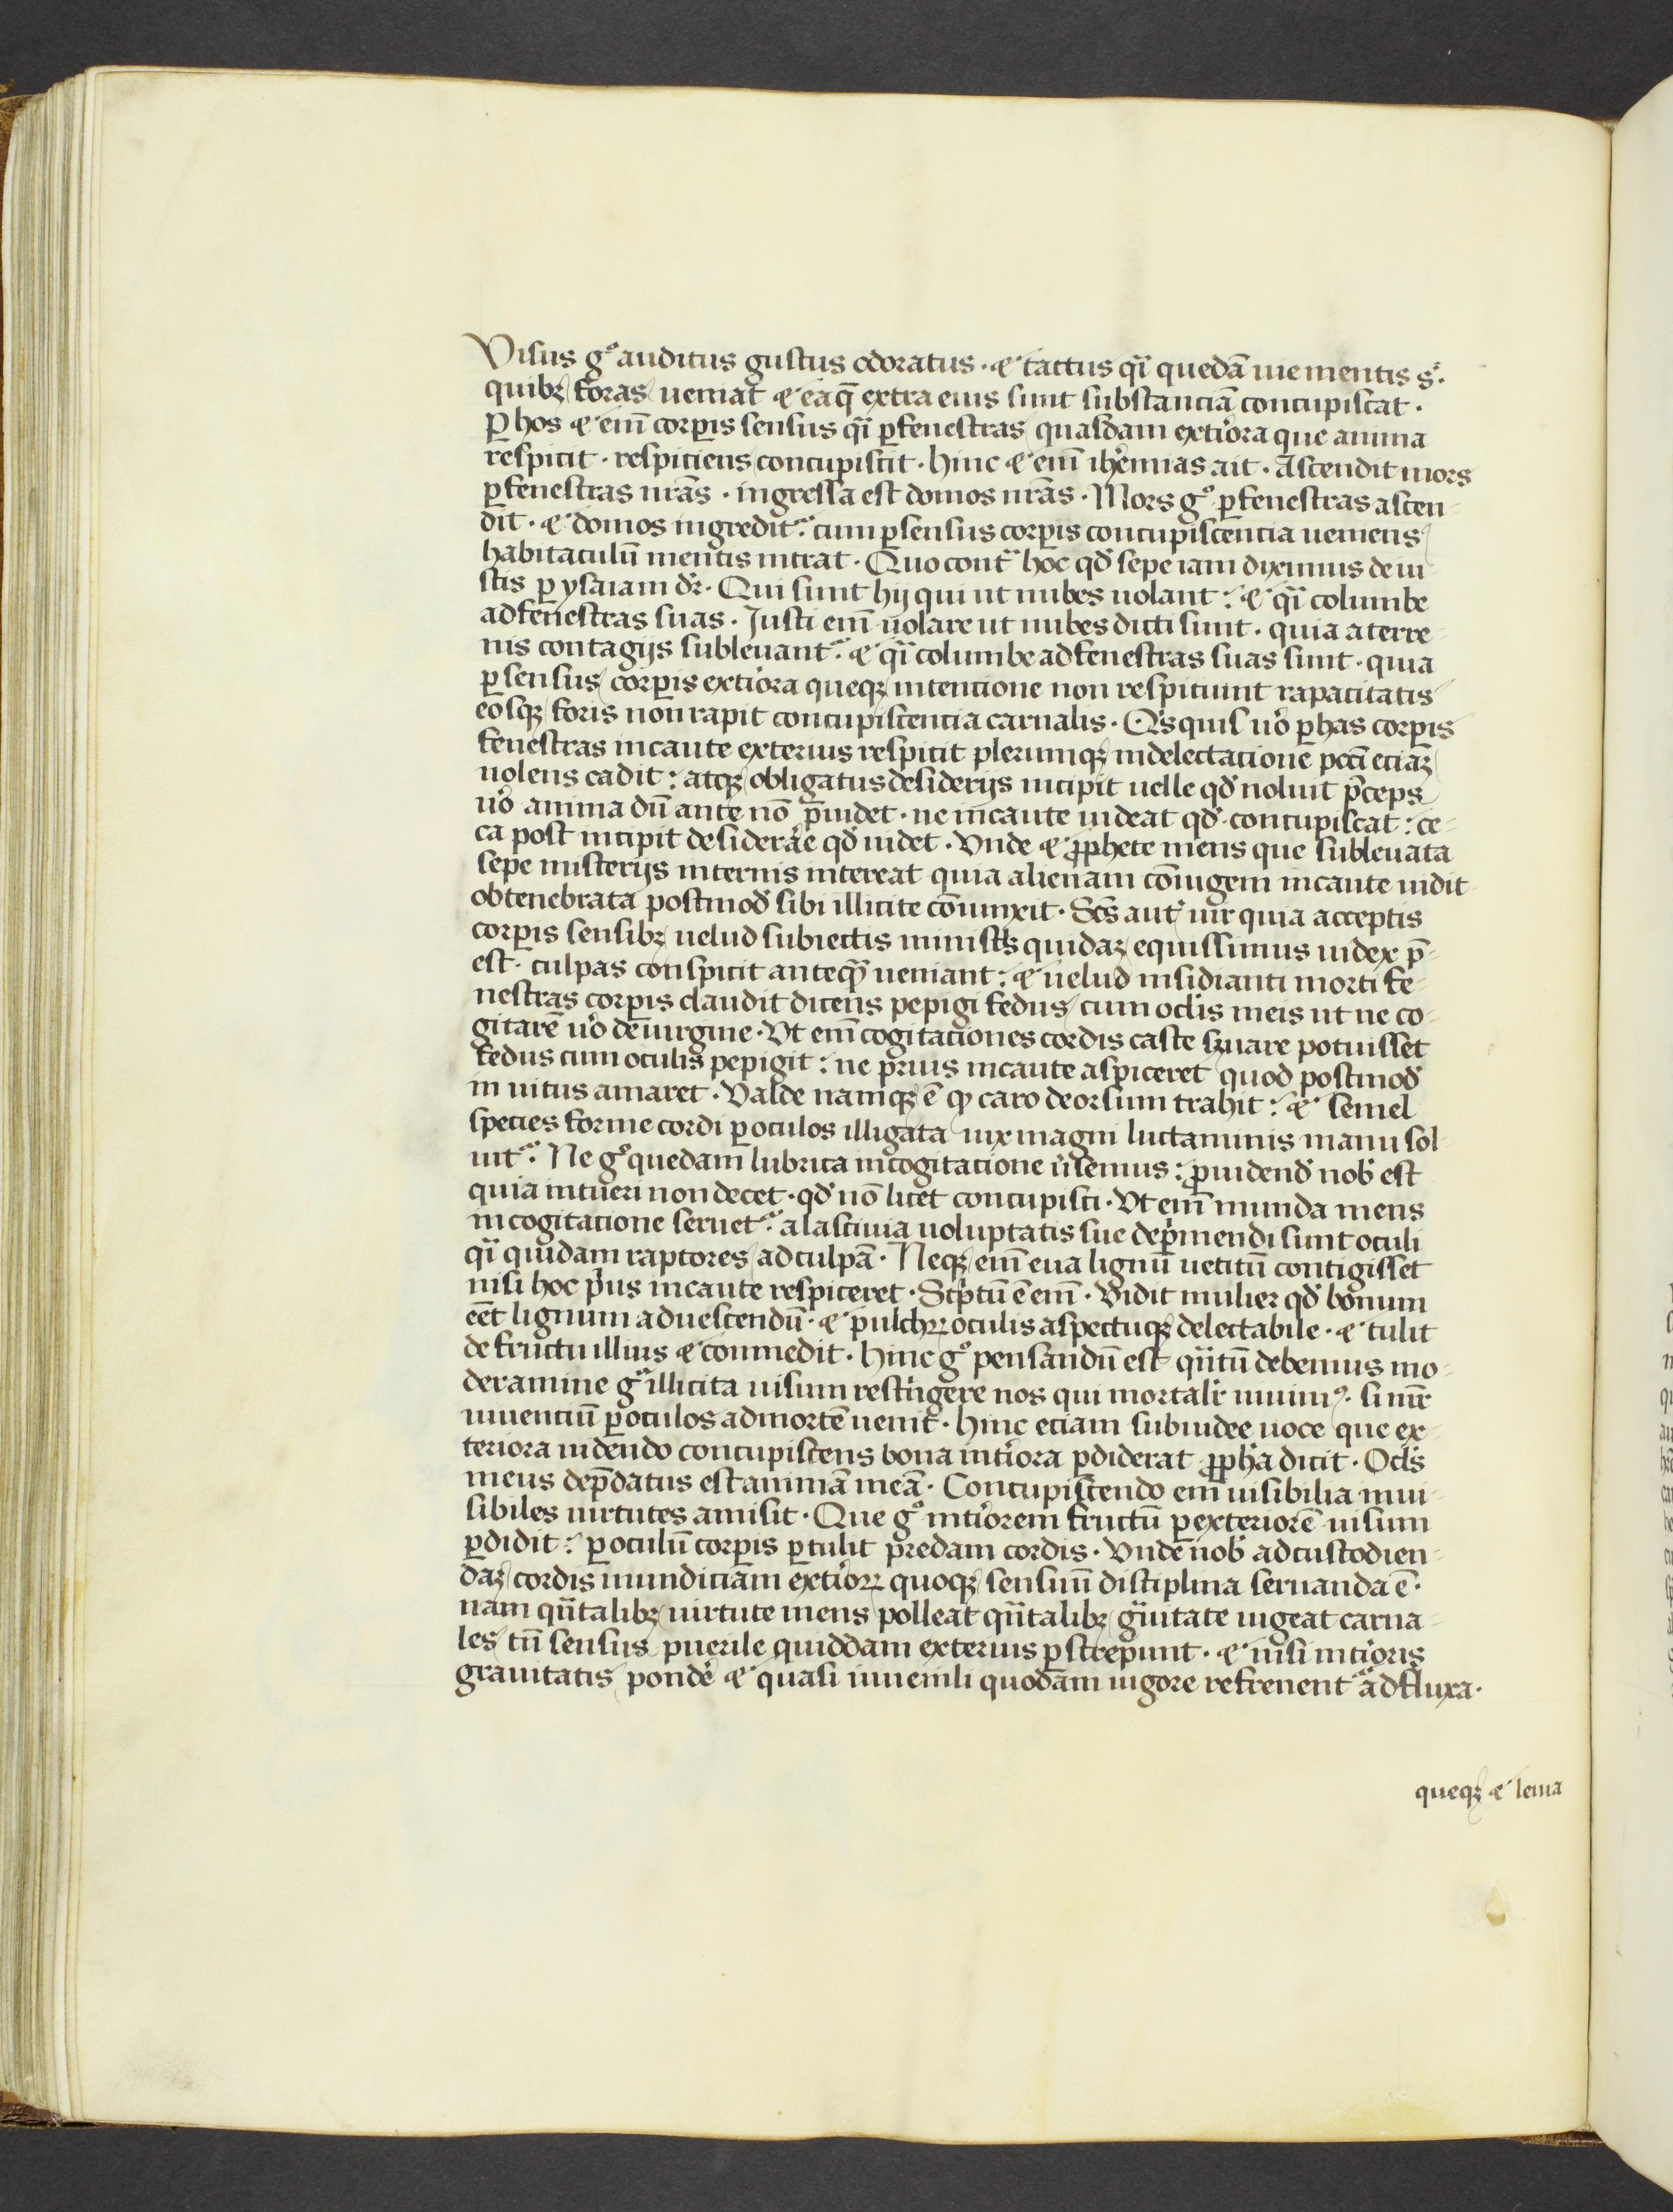 Visus gͦ auditus gustus odoratus · ⁊ tactus qͣi quedā uie mentis sͭ ·
quibꝫ foras ueniat ⁊ ea q̄ extra eius sunt substanciā concupiscat ·
Ꝑ hos ⁊ em̄ corꝑis sensus qͣi ꝑ fenestras quasdam exti᾿ora que anima
respicit · respiciens concupiscit · Hinc ⁊ em̄ ih᾿emias ait · Ascendit mors
ꝑ fenestras nrās · ingressa est domos nrās · Mors gͦ ꝑ fenestras ascen-
dit · ⁊ domos ingreditᷣ · cum ꝑ sensus corꝑis concupiscencia ueniens
habitaculū mentis intrat · Quo contͣ hoc qd᾿ sepe iam diximus de iu-
stis ꝑ ysaiam dr᾿ · Qui sunt hij qui ut nubes uolant : ⁊ qͣi columbe
ad fenestras suas · Justi em̄ uolare ut nubes dicti sunt · quia a terre-
nis contagijs subleuantᷣ · ⁊ qͣi columbe ad fenestras suas sunt · quia
ꝑ sensus corꝑis exti᾿ora queqꝫ intencione non respiciunt rapacitatis
eosqꝫ foris non rapit concupiscencia carnalis · Qͥsquis uº ꝑ has corꝑis
fenestras incaute exterius respicit plerumqꝫ in delectacione pctī eciaꝫ
nolens cadit : atqꝫ obligatus desiderijs incipit uelle qd᾿ noluit p̄ceps
uº anima dū ante nō p̄uidet · ne incaute uideat qd᾿ concupiscat : ce-
ca post incipit desiderar᾿e qd᾿ uidet · Vnde ⁊ ꝓphete mens que subleuata
sepe misterijs internis intereat quia alienam cōiugem incaute uidit
obtenebrata postmod᾿ sibi illicite cōiunxit · Scs̄ aut᾿ uir quia acceptis
corꝑis sensibꝫ uelud subiectis minist᾿s quidaꝫ equissimus iudex p̄-
est · culpas conspicit anteqͣ ueniant : ⁊ uelud insidianti morti fe-
nestras corꝑis claudit dicens pepigi fedus cum ocl᾿is meis ut ne co-
gitarē uº de uirgine · Vt em̄ cogitaciones cordis caste s᾿uare potuisset
fedus cum oculis pepigit : ne pͥus incaute aspiceret quod postmod᾿
in uitus amaret · Valde namqꝫ ē ꝙ caro deorsum trahit : ⁊ semel
species forme cordi ꝑ oculos illigata uix magni luctaminis manu sol-
uitᷣ · Ne gͦ quedam lubrica in cogitacione u᾿semus : ꝓuidend᾿ nob᾿ est
quia intueri non decet · qd᾿ nō licet concupisci · Vt em̄ munda mens
in cogitacione seruetᷣ · a lasciuia uoluptatis sue depͥmendi sunt oculi
qͣi quidam raptores ad culpā · Neqꝫ em̄ eua lignū uetitū contigisset
nisi hoc pͥus incaute respiceret · Scͥptū ē em̄ · Vidit mulier qd᾿ bonum
eēt lignum ad uescendū · ⁊ pulchꝝ oculis aspectuqꝫ delectabile · ⁊ tulit
de fructu illius ⁊ commedit · Hinc gͦ pensandū est qͣntū debemus mo-
deramine gͣ illicita uisum restͥngere nos qui mortalr᾿ uiuimꝰ · si mr̄
uiuenciū ꝑ oculos ad mortē uenit · Hinc eciam sub iudee uoce que ex-
teriora uidendo concupiscens bona inti᾿ora ꝑdiderat ꝓph᾿a dicit · Ocl᾿s
meus dep̄datus est animā meā · Concupiscendo em̄ uisibilia inui-
sibiles uirtutes amisit · Que gͦ inti᾿orem fructū ꝑ exteriorē uisum
ꝑdidit : ꝑ oculū corꝑis ꝑtulit predam cordis · Vnde nob᾿ ad custodien-
daꝫ cordis mundiciam exti᾿oꝝ quoqꝫ sensuū disciplina seruanda ē ·
nam qͣntalibꝫ uirtute mens polleat qͣntalibꝫ gͣuitate uigeat carna-
les tn̄ sensus puerile quiddam exterius ꝑstrepunt · ⁊ nisi inti᾿oris
grauitatis ponder᾿ ⁊ quasi iuuenili quodam uigore refrenentᷣ ad fluxa ·
queqꝫ ⁊ leuia